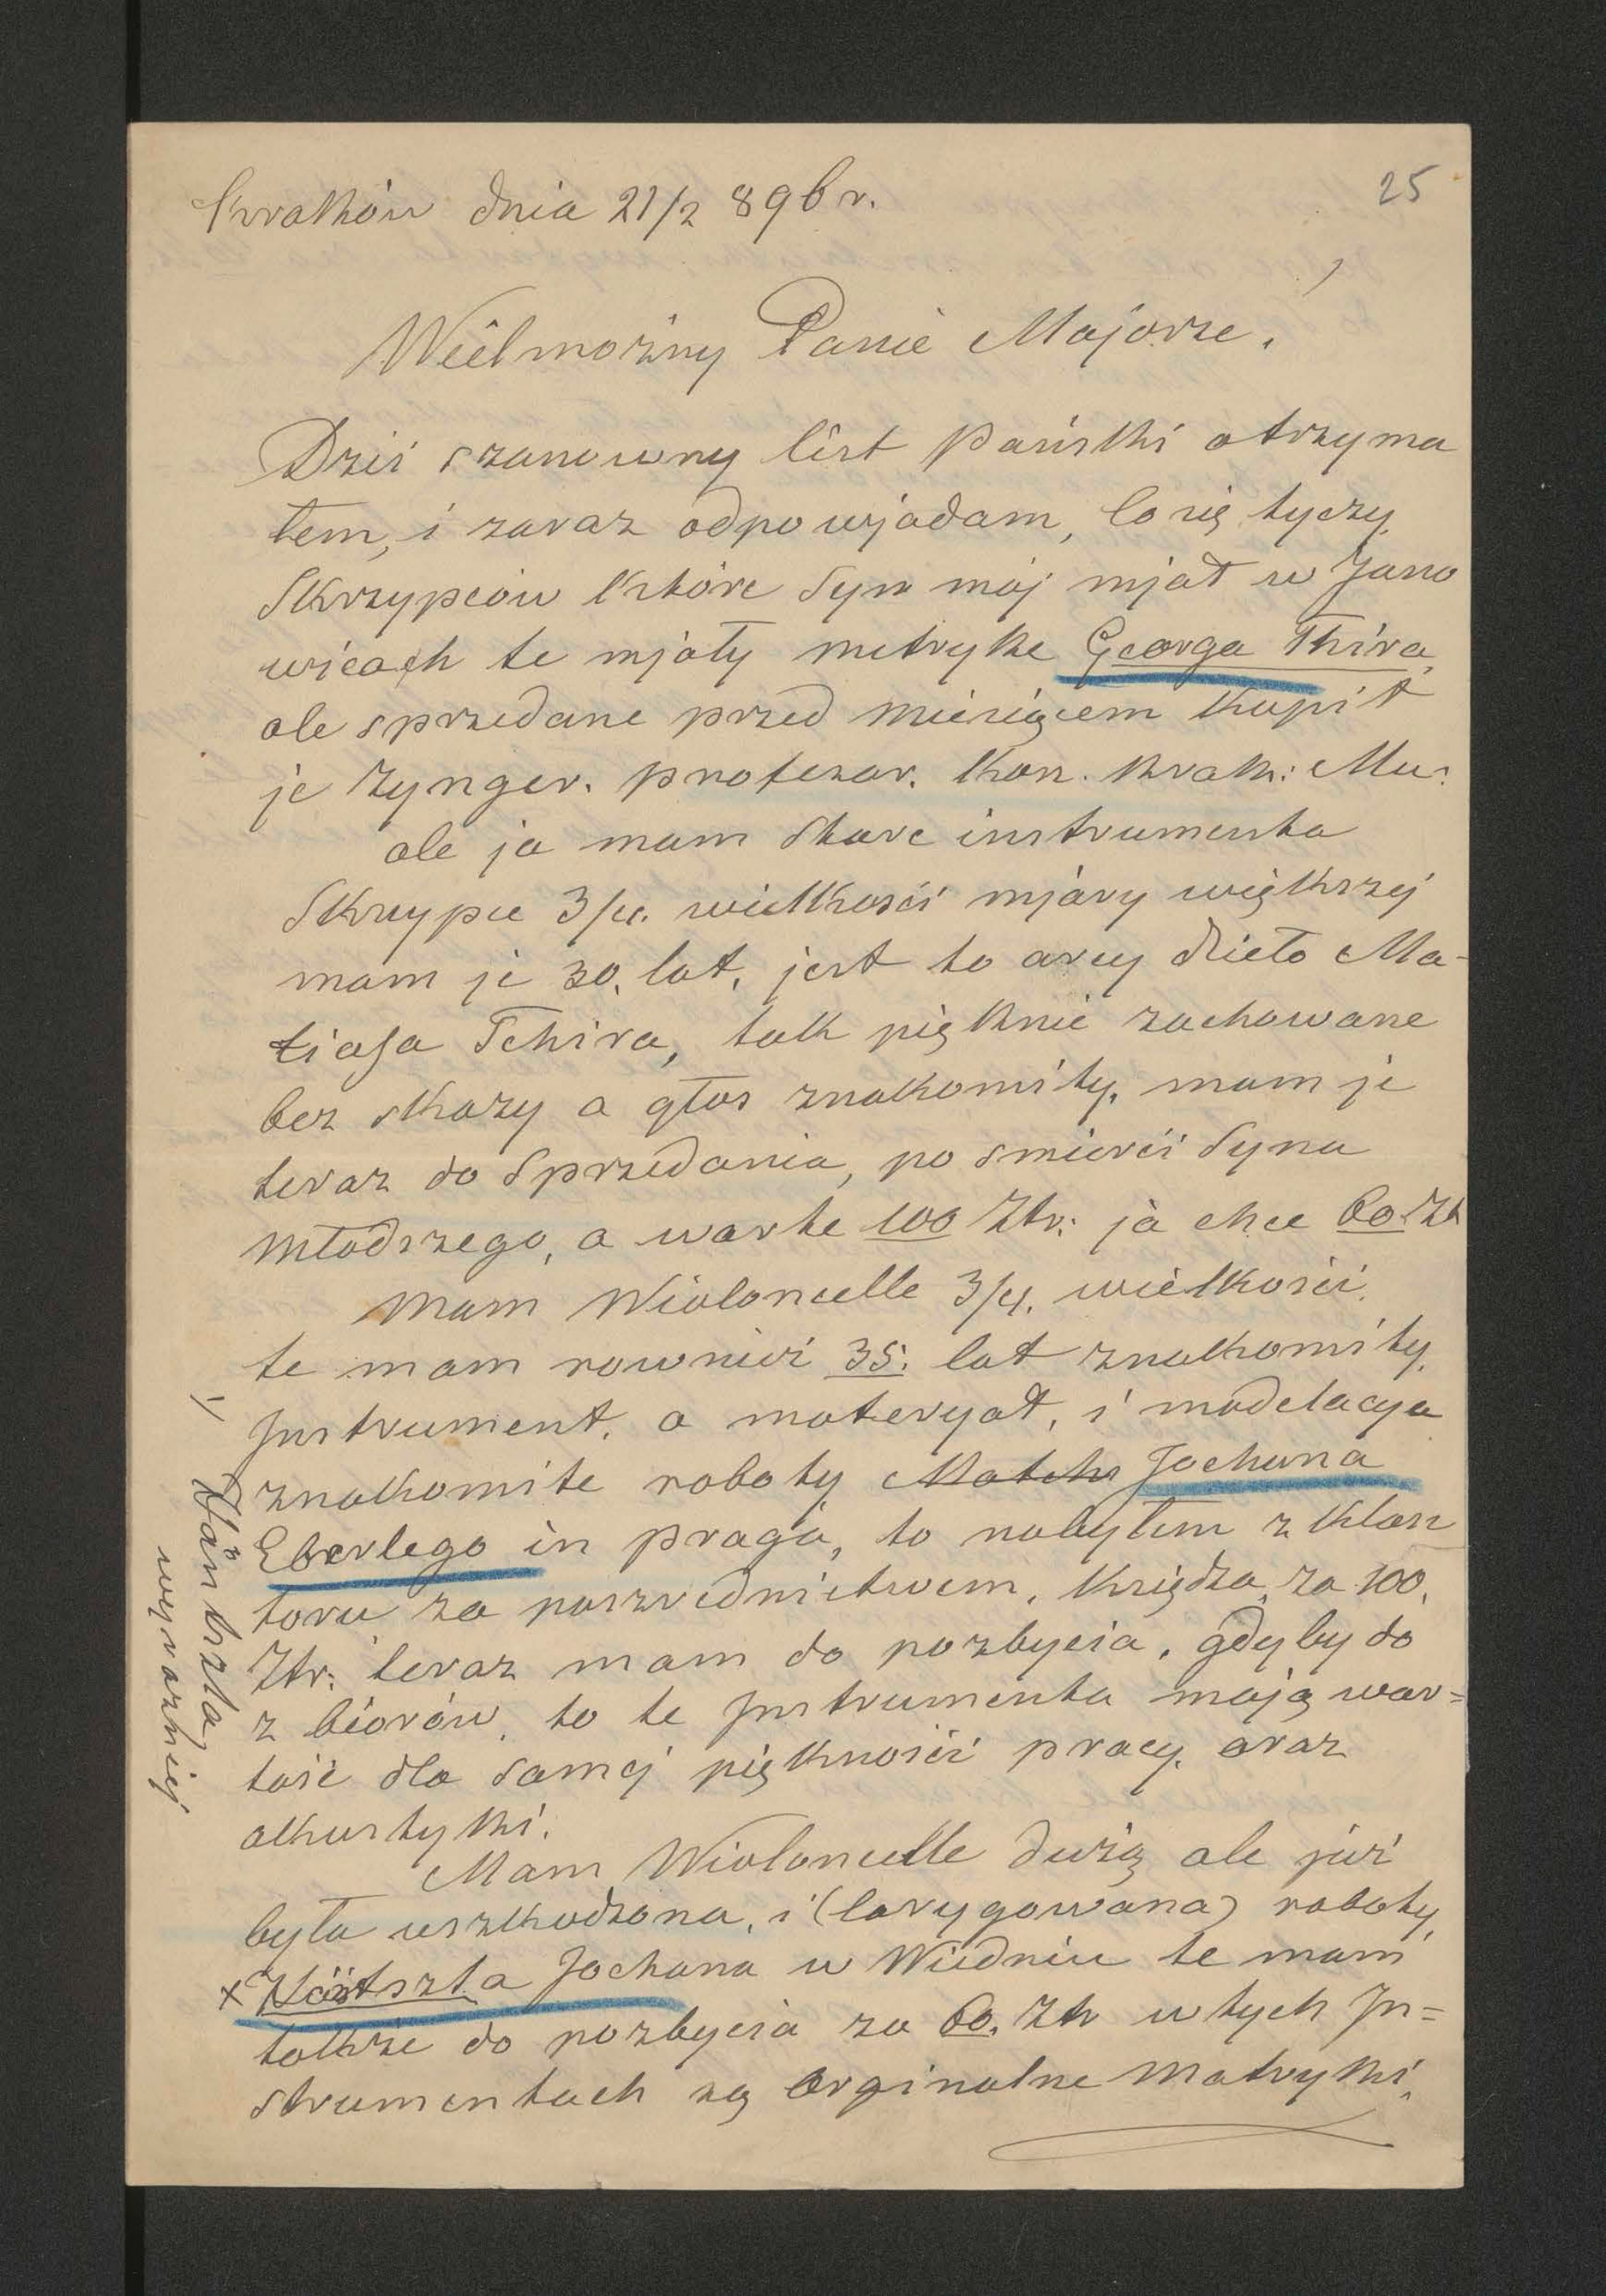 25
Kraków dnia 21/2 896 r.
Wielmożny Panie Majorze,
Dziś szanowny list Pański otrzyma
łem, i zaraz odpowjadam, Co się tyczy
Skrzypców które Syn mój mjał w Jano
wicach te mjały metrykę Georga Thira,
ale sprzedane przed miesiącem Kupił
je Zynger. profezor. Kon. Krak: Mu:
ale ja mam Stare instrumenta
Skrzypce 3/4. wielkości mjary większej
mam je 30. lat, jest to arcy dzieło Ma-
tiasa Tchira, tak pięknie zachowane
bez skazy a głos znakomity, mam je
teraz do Sprzedania, po śmierci Syna
młodszego, a warte 100 Ztr: ja chce 60. Ztr
Mam Wioloncelle 3/4. wielkości,
te mam rownież 35. lat znakomity
Instrument, a materyał, i modelacya
znakomite roboty Jochana
Eberlego in praga, to nabyłem z klasz
toru za poszrednictwem, Księdza, za 100.
Ztr: teraz mam do pozbycia, gdyby do
zbiorów, to te Instrumenta mają war=
tość dla samej piękności pracy, oraz
akustyki.
Mam Wioloncelle dużą ale już
była uszkodzona, i (larygowana) roboty
x Jochana w Wiedniu te mam
także do pozbycia za 60. Ztr w tych In=
strumentach są Orginalne Matryki,
wyrazniej